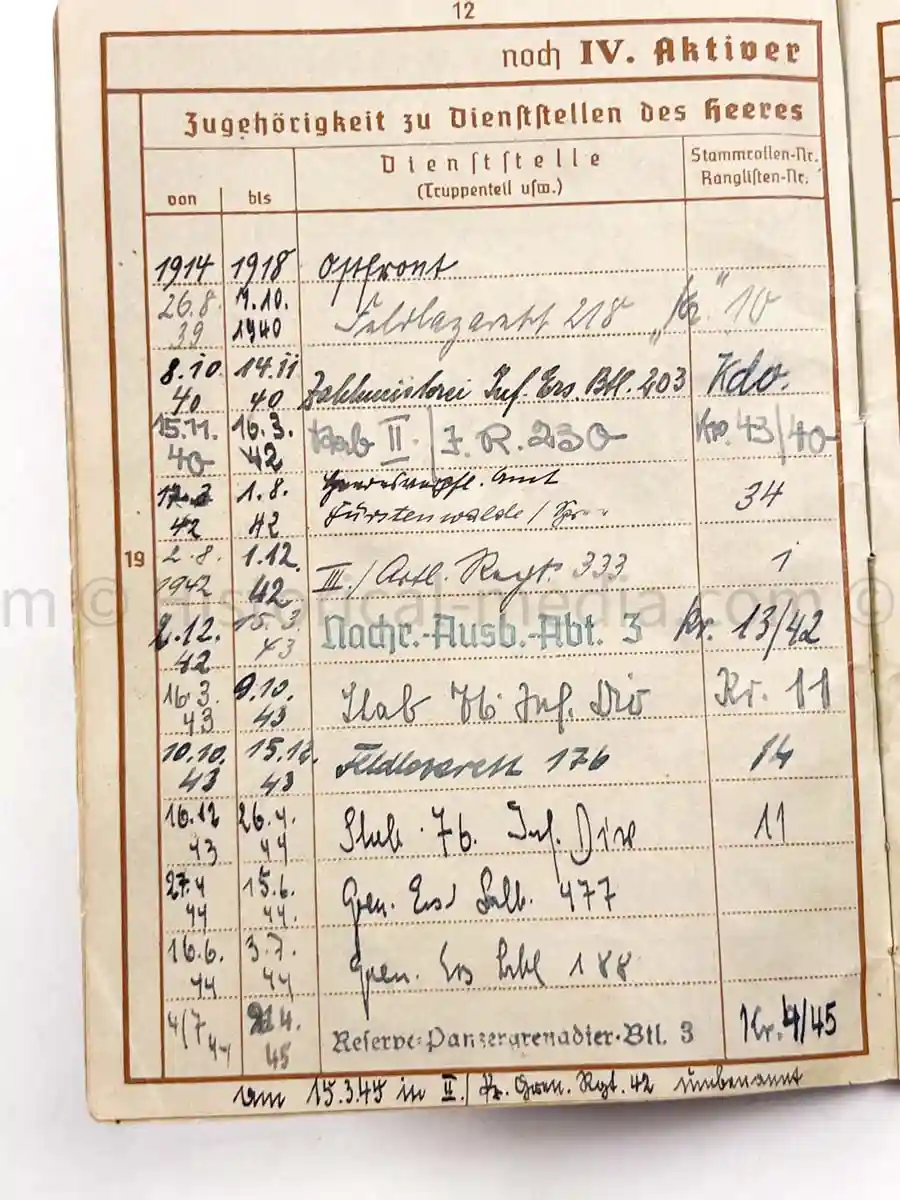 12
noch IV. Aktiver
Zugehörigkeit zu Dienststellen des Heeres
von bis Dienststelle (Truppenteil usw.) Stammrollen-Nr. Ranglisten-Nr.
1914 1918 Ostfront
26.8. 39 7.10. 1940 Feldlazarett 218 "Kr." 10
8.10. 40 14.11 40 Zahlmeisterei Inf. Ers. Btl. 203 Kdo.
15.11. 40 16.3. 42 Stab II./J.R. 230 Kr. 43/40
17.3 42 1.8. 42 Heeresverpfl. Amt Fürstenwalde/Spree 34
19
2.8. 1942 1.12. 42 III./Artl. Regt. 333 1
2.12. 42 15.3. 43 Nachr.-Ausb.-Abt. 3 Kr. 13/42
16.3. 43 9.10. 43 Stab 76. Inf. Div Kr. 11
10.10. 43 15.12. 43 Feldlazarett 176 14
16.12 43 26.4. 44 Stab 76. Inf. Div 11
27.4 44 15.6. 44. Gren. Ers 477
16.6. 44 3.7. 44 Gren. Ers Btl 188
4/7 44 4. 45 Reserve-Panzergrenadier-Btl. 3 Kr. 4/45
Am 15.3.45 in II./Pz. Gren. Rgt. 42 umbenannt
m © historical-media.com ©